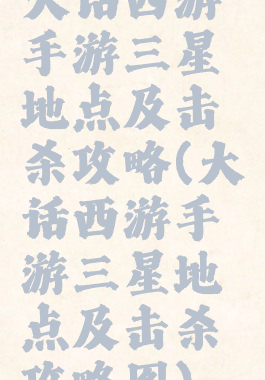 大话西游
手游三星
地点及击
杀攻略(大
话西游手
游三星地
点及击杀
攻略图)